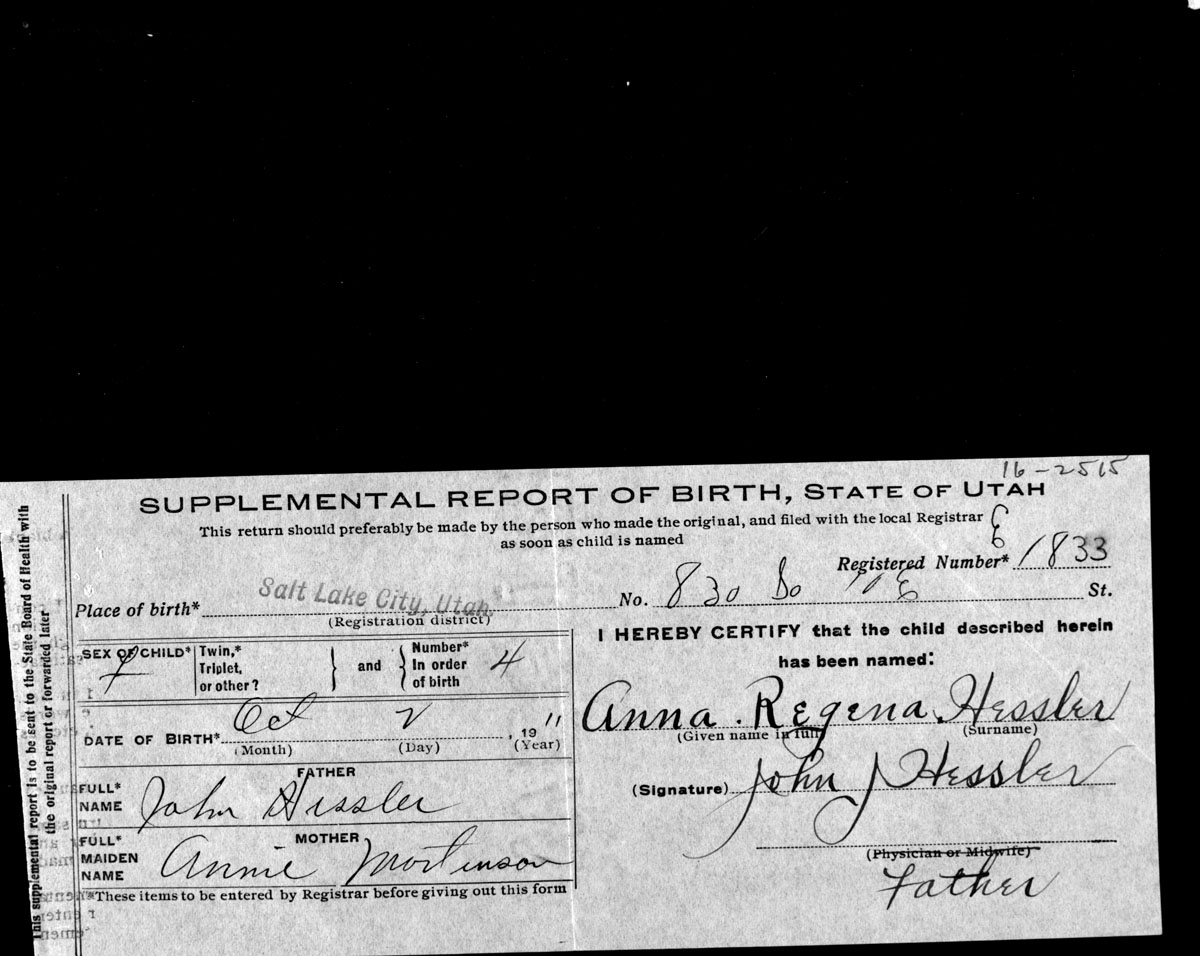 16-2515
SUPPLEMENTAL REPORT OF BIRTH, STATE OF UTAH
This return should preferably be made by the person who made the original, and filed with the local Registrar
as soon as child is named
Registered Number* 1833
Place of birth* Salt Lake City, Utah. No. 830 So 10 E St.
(Registration district)
SEX OF CHILD* f Twin,* Triplet, or other? } and { Number* In order of birth 4
DATE OF BIRTH* Oct 2, 1911
(Month) (Day) (Year)
FATHER
FULL* NAME John Hessler
MOTHER
FULL* MAIDEN NAME Annie Mortenson
*These items to be entered by Registrar before giving out this form
I HEREBY CERTIFY that the child described herein
has been named:
Anna. Regena. Hessler
(Given name in full) (Surname)
(Signature) John J Hessler
(Physician or Midwife)
Father
This supplemental report is to be sent to the State Board of Health with
the original report or forwarded later